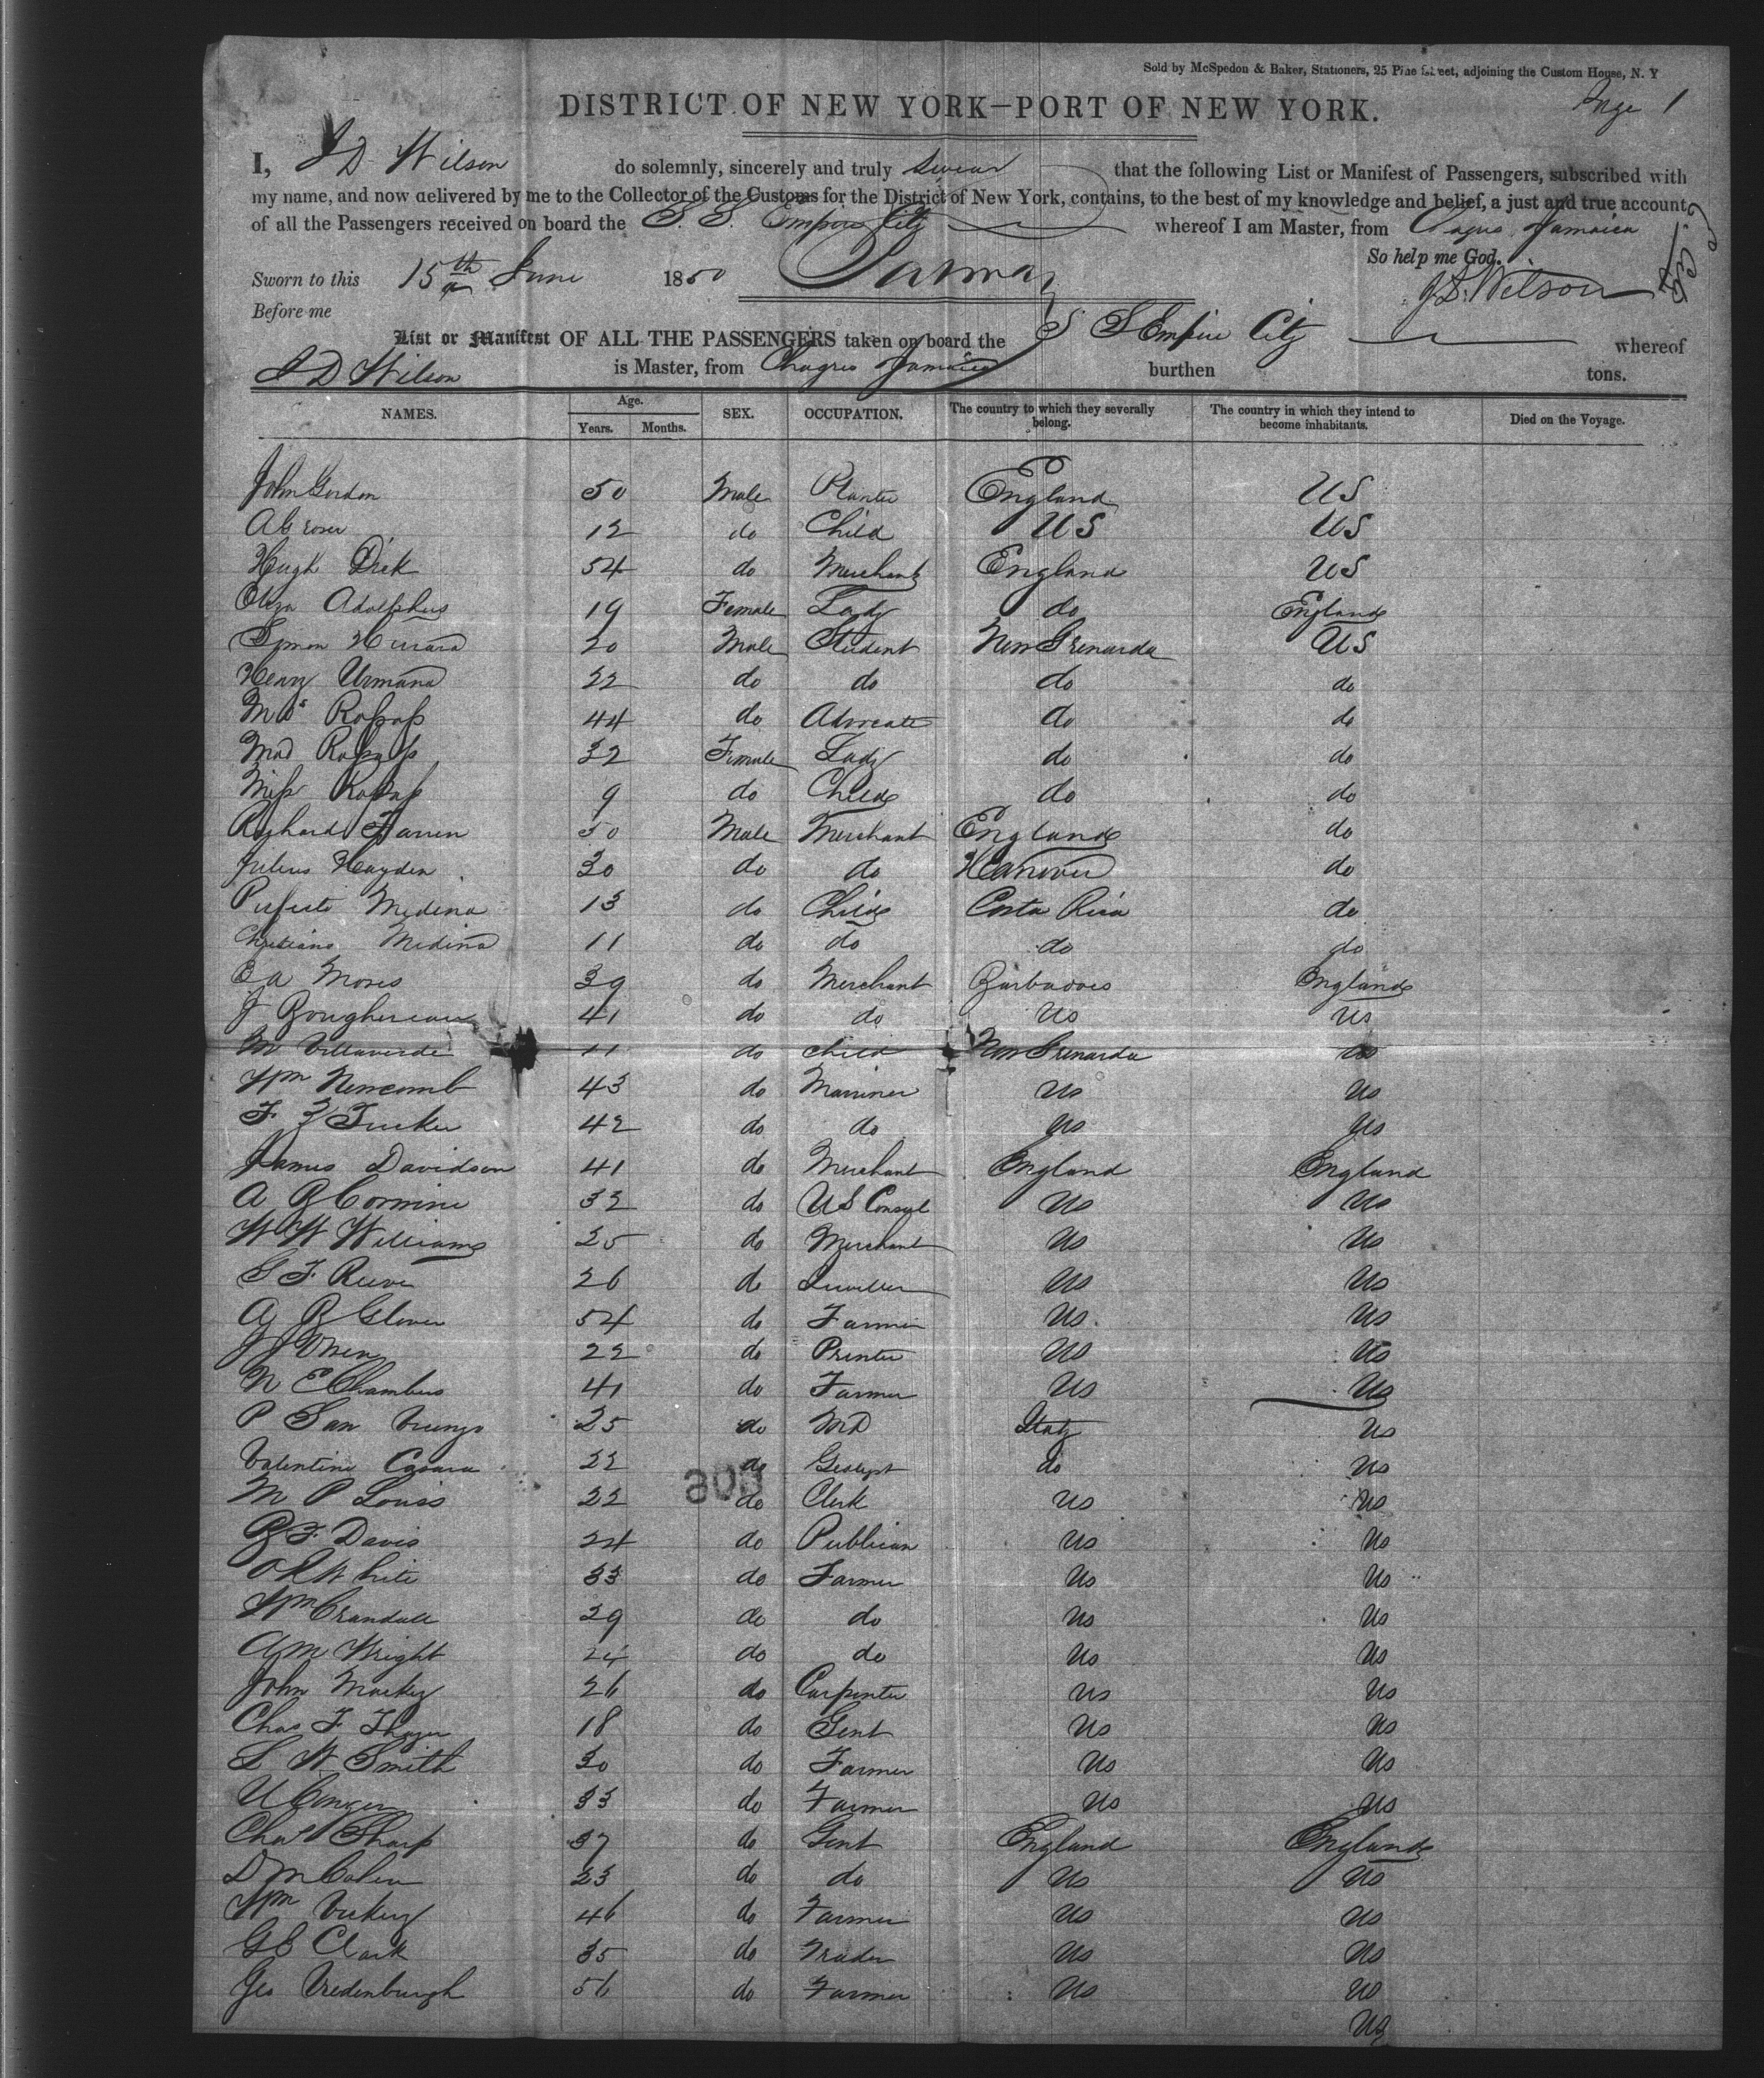 Sold by McSpedon & Baker, Stationers, 25 Pine Street, adjoining the Custom House, N. Y
Page 1
DISTRICT OF NEW YORK—PORT OF NEW YORK.
I, J D Wilson do solemnly, sincerely and truly swear that the following List or Manifest of Passengers, subscribed with
my name, and now delivered by me to the Collector of the Customs for the District of New York, contains, to the best of my knowledge and belief, a just and true account
of all the Passengers received on board the S. S. Empire City whereof I am Master, from Chagres Jamaica
So help me God.
Sworn to this 15th June 1850
J D. Wilson
Before me
List or Manifest OF ALL THE PASSENGERS taken on board the S S Empire City whereof
J D Wilson is Master, from Chagres Jamaica burthen tons.
NAMES. Age. Years. Months. SEX. OCCUPATION. The country to which they severally belong. The country in which they intend to become inhabitants. Died on the Voyage.
John Gordon 50 Male Planter England US
12 do Child US US
Hugh Dick 54 do Merchant England US
Eliza Adolphus 19 Female Lady do England
20 Male Student New Grenarda US
Henry Urmana 22 do do do do
44 do Advocate do do
32 Female Lady do do
Miss 9 do Child do do
Richard Farren 50 Male Merchant England do
Julius Hayden 30 do do Hanover do
Perfecto Medina 13 do Child Costa Rica do
Medina 11 do do do do
E A Moses 39 do Merchant Barbadoes England
J Boughereau 41 do do US US
M Villaverde 11 do child New Grenarda US
Wm Newcomb 43 do Marriner US US
F Z Tucker 42 do do US US
James Davidson 41 do Merchant England England
A B Corwine 32 do US Consul US US
W W Williams 25 do Merchant US US
G F Reeve 26 do Jeweller US US
A B Glover 54 do Farmer US US
J J Owen 22 do Printer US US
N E Chambers 41 do Farmer US US
P San 25 do MD Italy US
Valentine 22 do do US
M P Louis 22 do Clerk US US
B F Davis 24 do Publican US US
O R White 33 do Farmer US US
Wm Crandall 29 do do US US
A M Wright 24 do do US US
John Mackey 26 do Carpenter US US
Chas F Thayer 18 do Gent US US
S W Smith 30 do Farmer US US
U Conger 33 do Farmer US US
Chas Sharp 37 do Gent England England
D M Cohen 23 do do US US
Wm Vickery 46 do Farmer US US
G E Clark 35 do Trader US US
Geo Vredenburgh 56 do Farmer US US
US